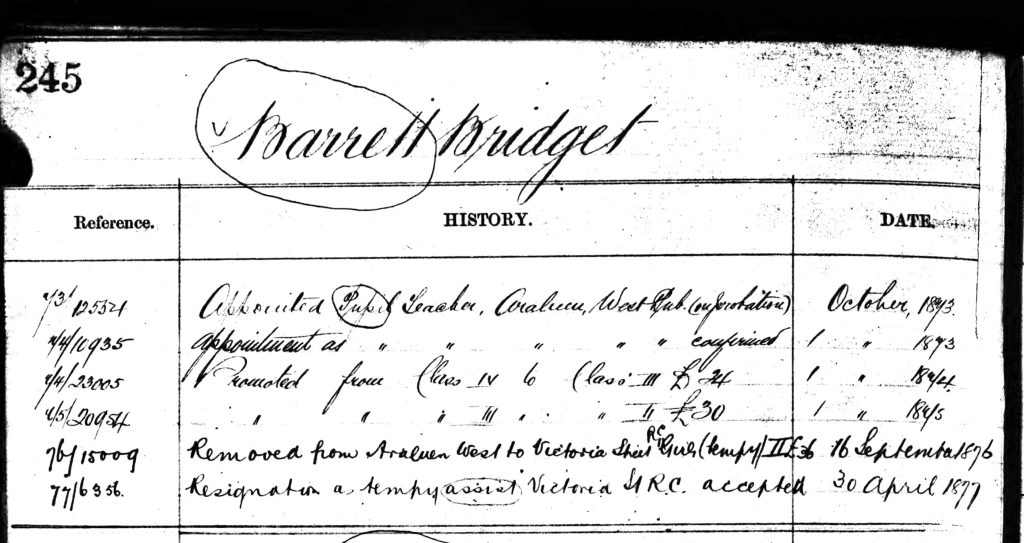 245
Barrett Bridget
Reference. HISTORY. DATE.
Appointed Pupil Teacher, Araluen, West Pub. (on probation) October, 1873.
appointment as " " " " " confirmed 1 " 1873
74/23005 Promoted from Class IV to Class III £ 24 1 " 1874.
75/20954 " " " III " " II £30 1 " 1875
76/15009 Removed from Araluen West to Victoria Street R.C. Girls (tempy) II £36 16 September 1876
77/6356. Resignation as tempy assist Victoria St R.C. accepted 30 April 1877